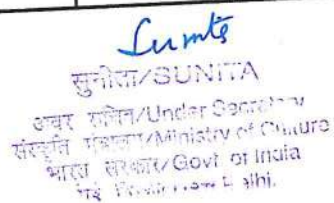 Sunita
सुनीता/SUNITA
अवर सचिव/Under Secretary
संस्कृति मंत्रालय/Ministry of Culture
भारत सरकार/Govt of India
नई Delhi.